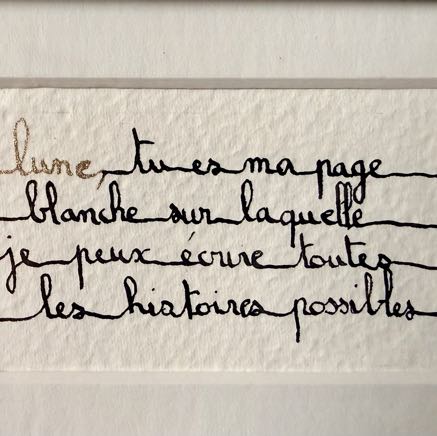 lune, tu es ma page
blanche sur laquelle
je peux écrire toutes
les histoires possibles